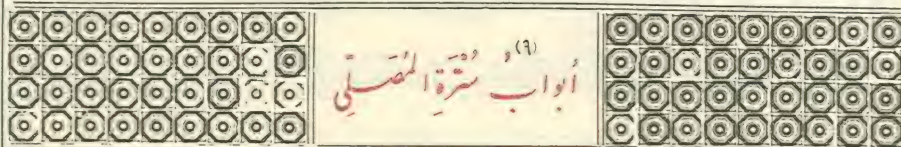 (٦) أبوابُ سُتْرَةِ المُصَلِّي